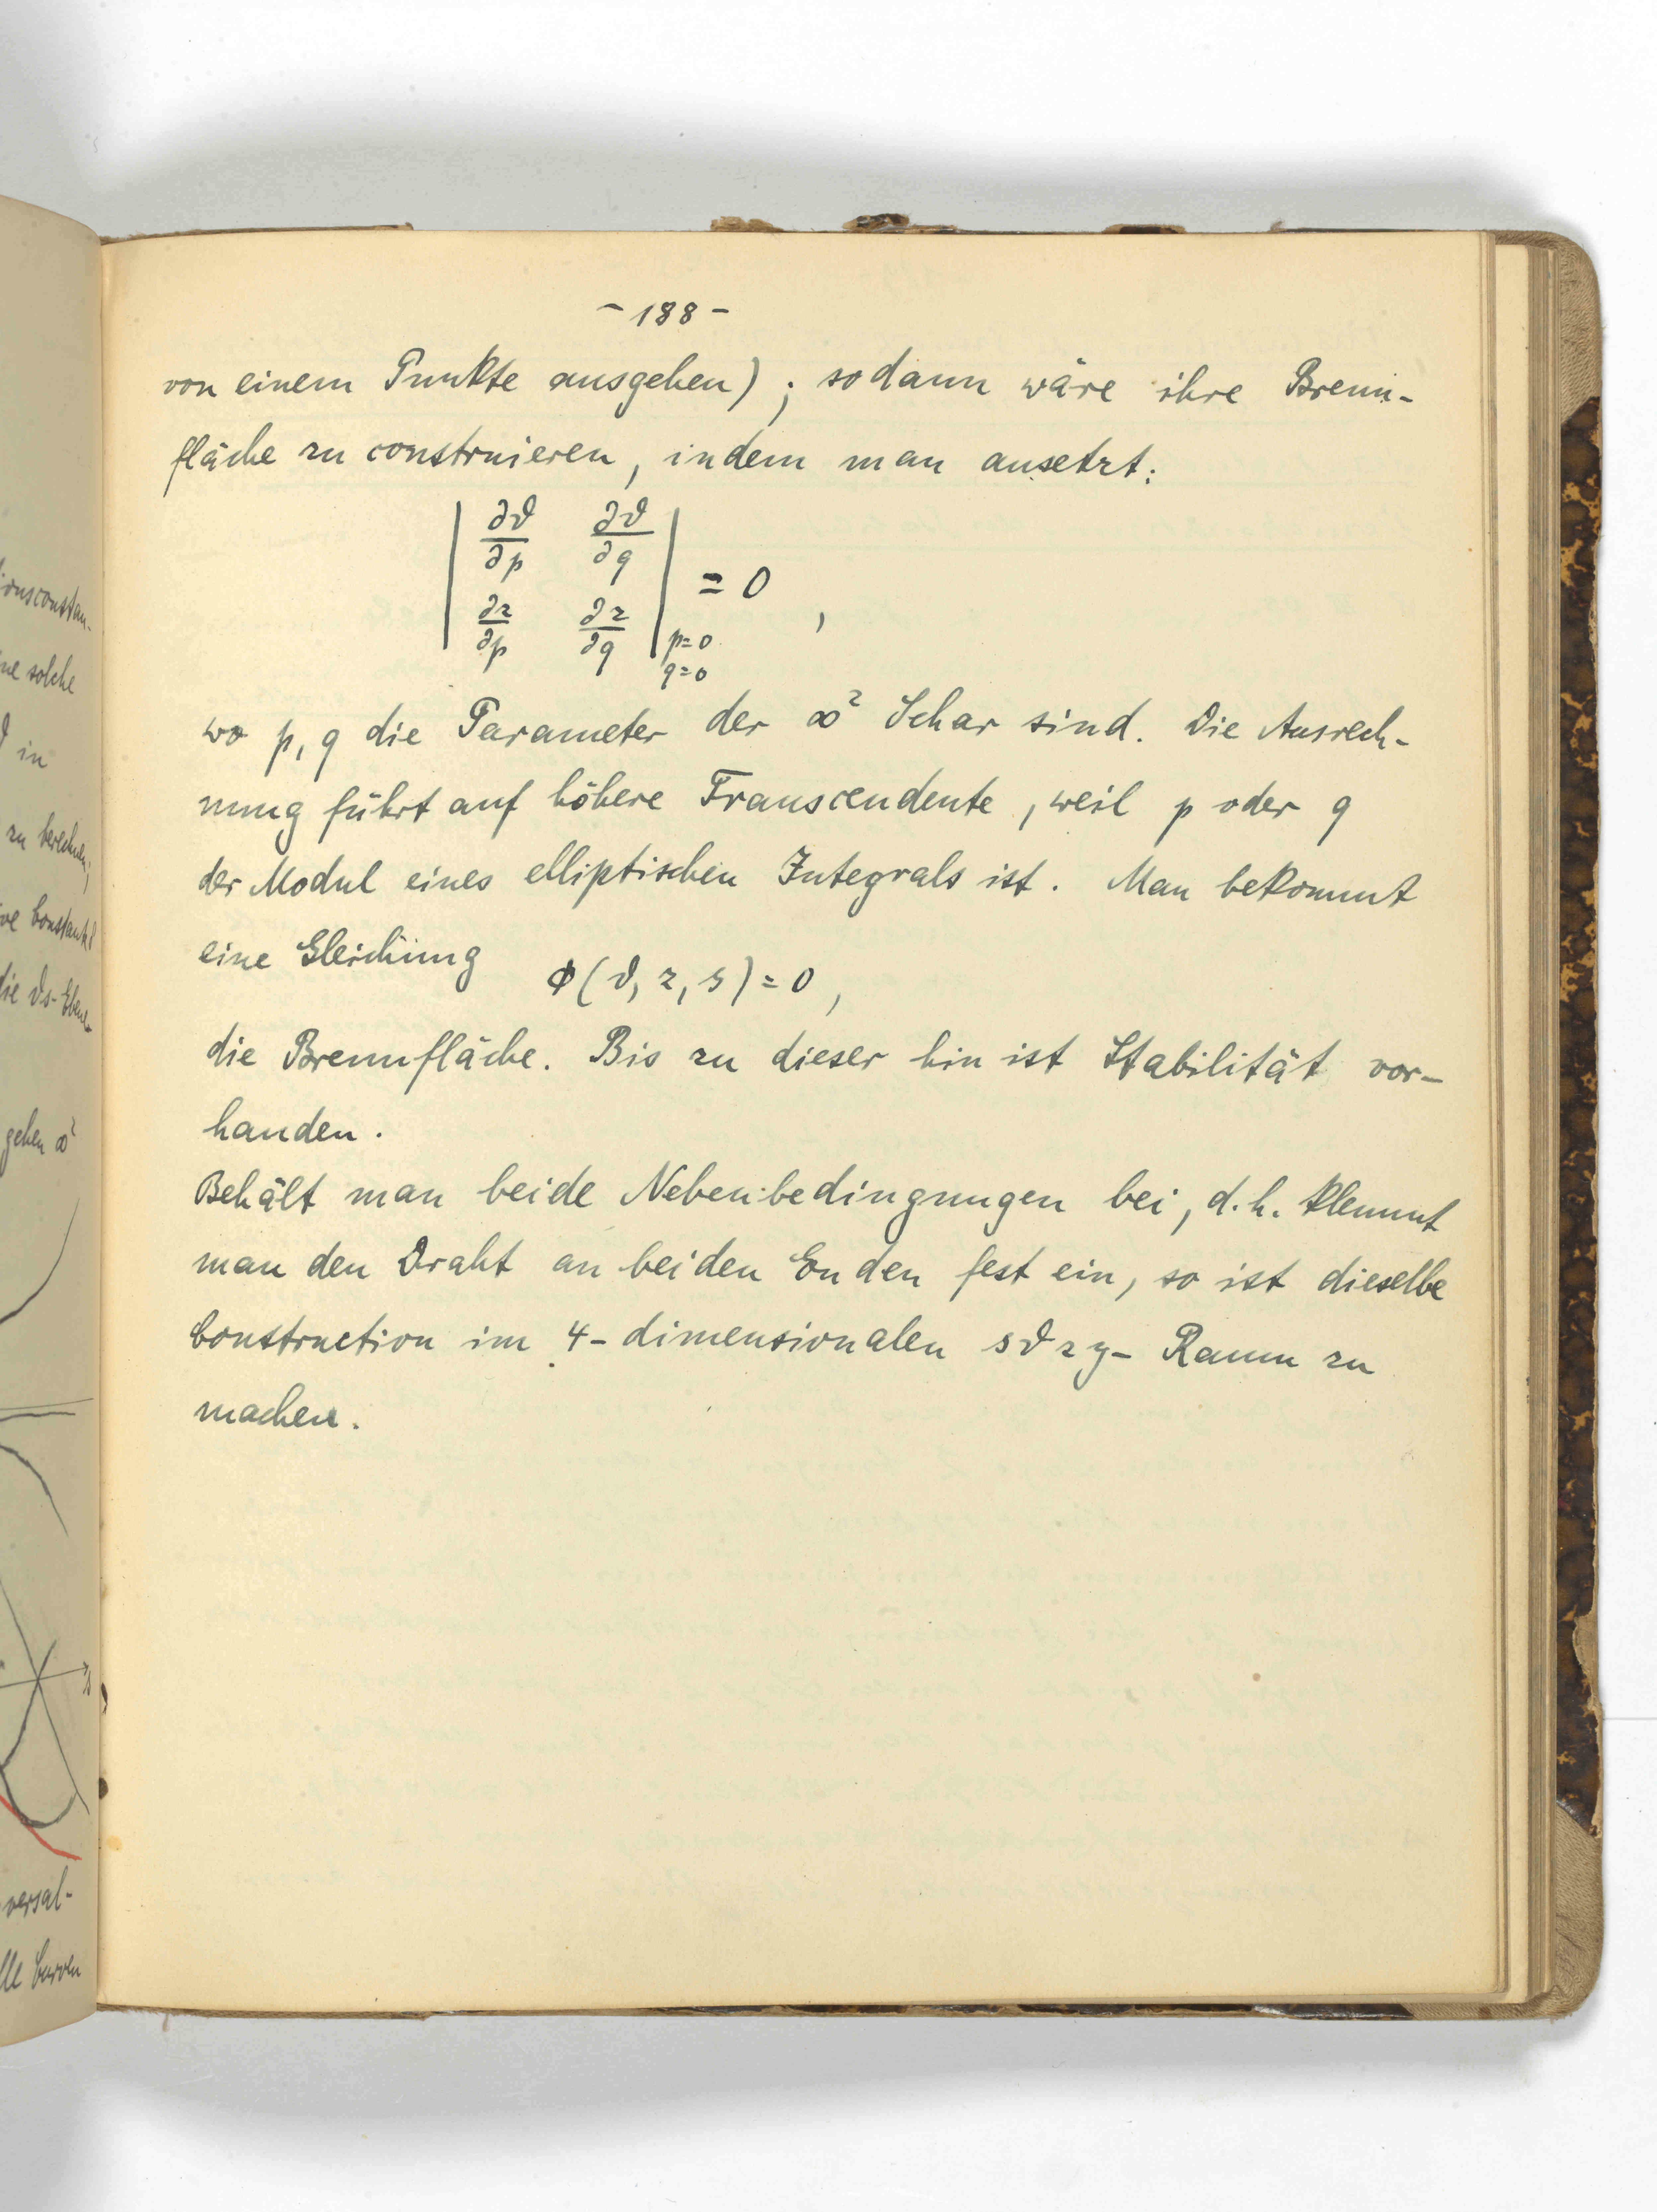 - 188 -
von einem Punkte ausgehen) ; sodann wäre ihre Brenn-
fläche zu construieren, indem man ansetzt:
| ∂ϑ/∂p ∂ϑ/∂q |
| ∂z/∂p ∂z/∂q | p=0 q=0 = 0 ,
wo p, q die Parameter der ∞² Schar sind. Die Ausrech-
nung führt auf höhere Transcendente, weil p oder q
der Modul eines elliptischen Integrals ist. Man bekommt
eine Gleichung ϕ(ϑ, z, s) = 0 ,
die Brennfläche. Bis zu dieser hin ist Stabilität vor-
handen.
Behält man beide Nebenbedingungen bei, d.h. klemmt
man den Draht an beiden Enden fest ein, so ist dieselbe
Construction im 4-dimensionalen sϑzy- Raum zu
machen.
ne solche
ϑ in
zu berechnen;
die ϑs-Ebene
gehen ∞²
versal-